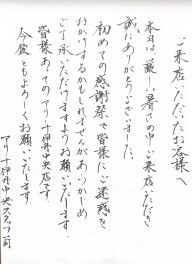 ご来店いただいたお客様へ
本日は、厳しい暑さの中ご来店いただき
誠にありがとうございました。
初めての感謝祭で皆様にご迷惑を
おかけするかもしれませんがあらかじめ
ご了承いただけますようお願いいたします。
皆様あってのアリーナ伊井中央店です。
今後ともよろしくお願いいたします。
アリーナ伊井中央スタッフ一同